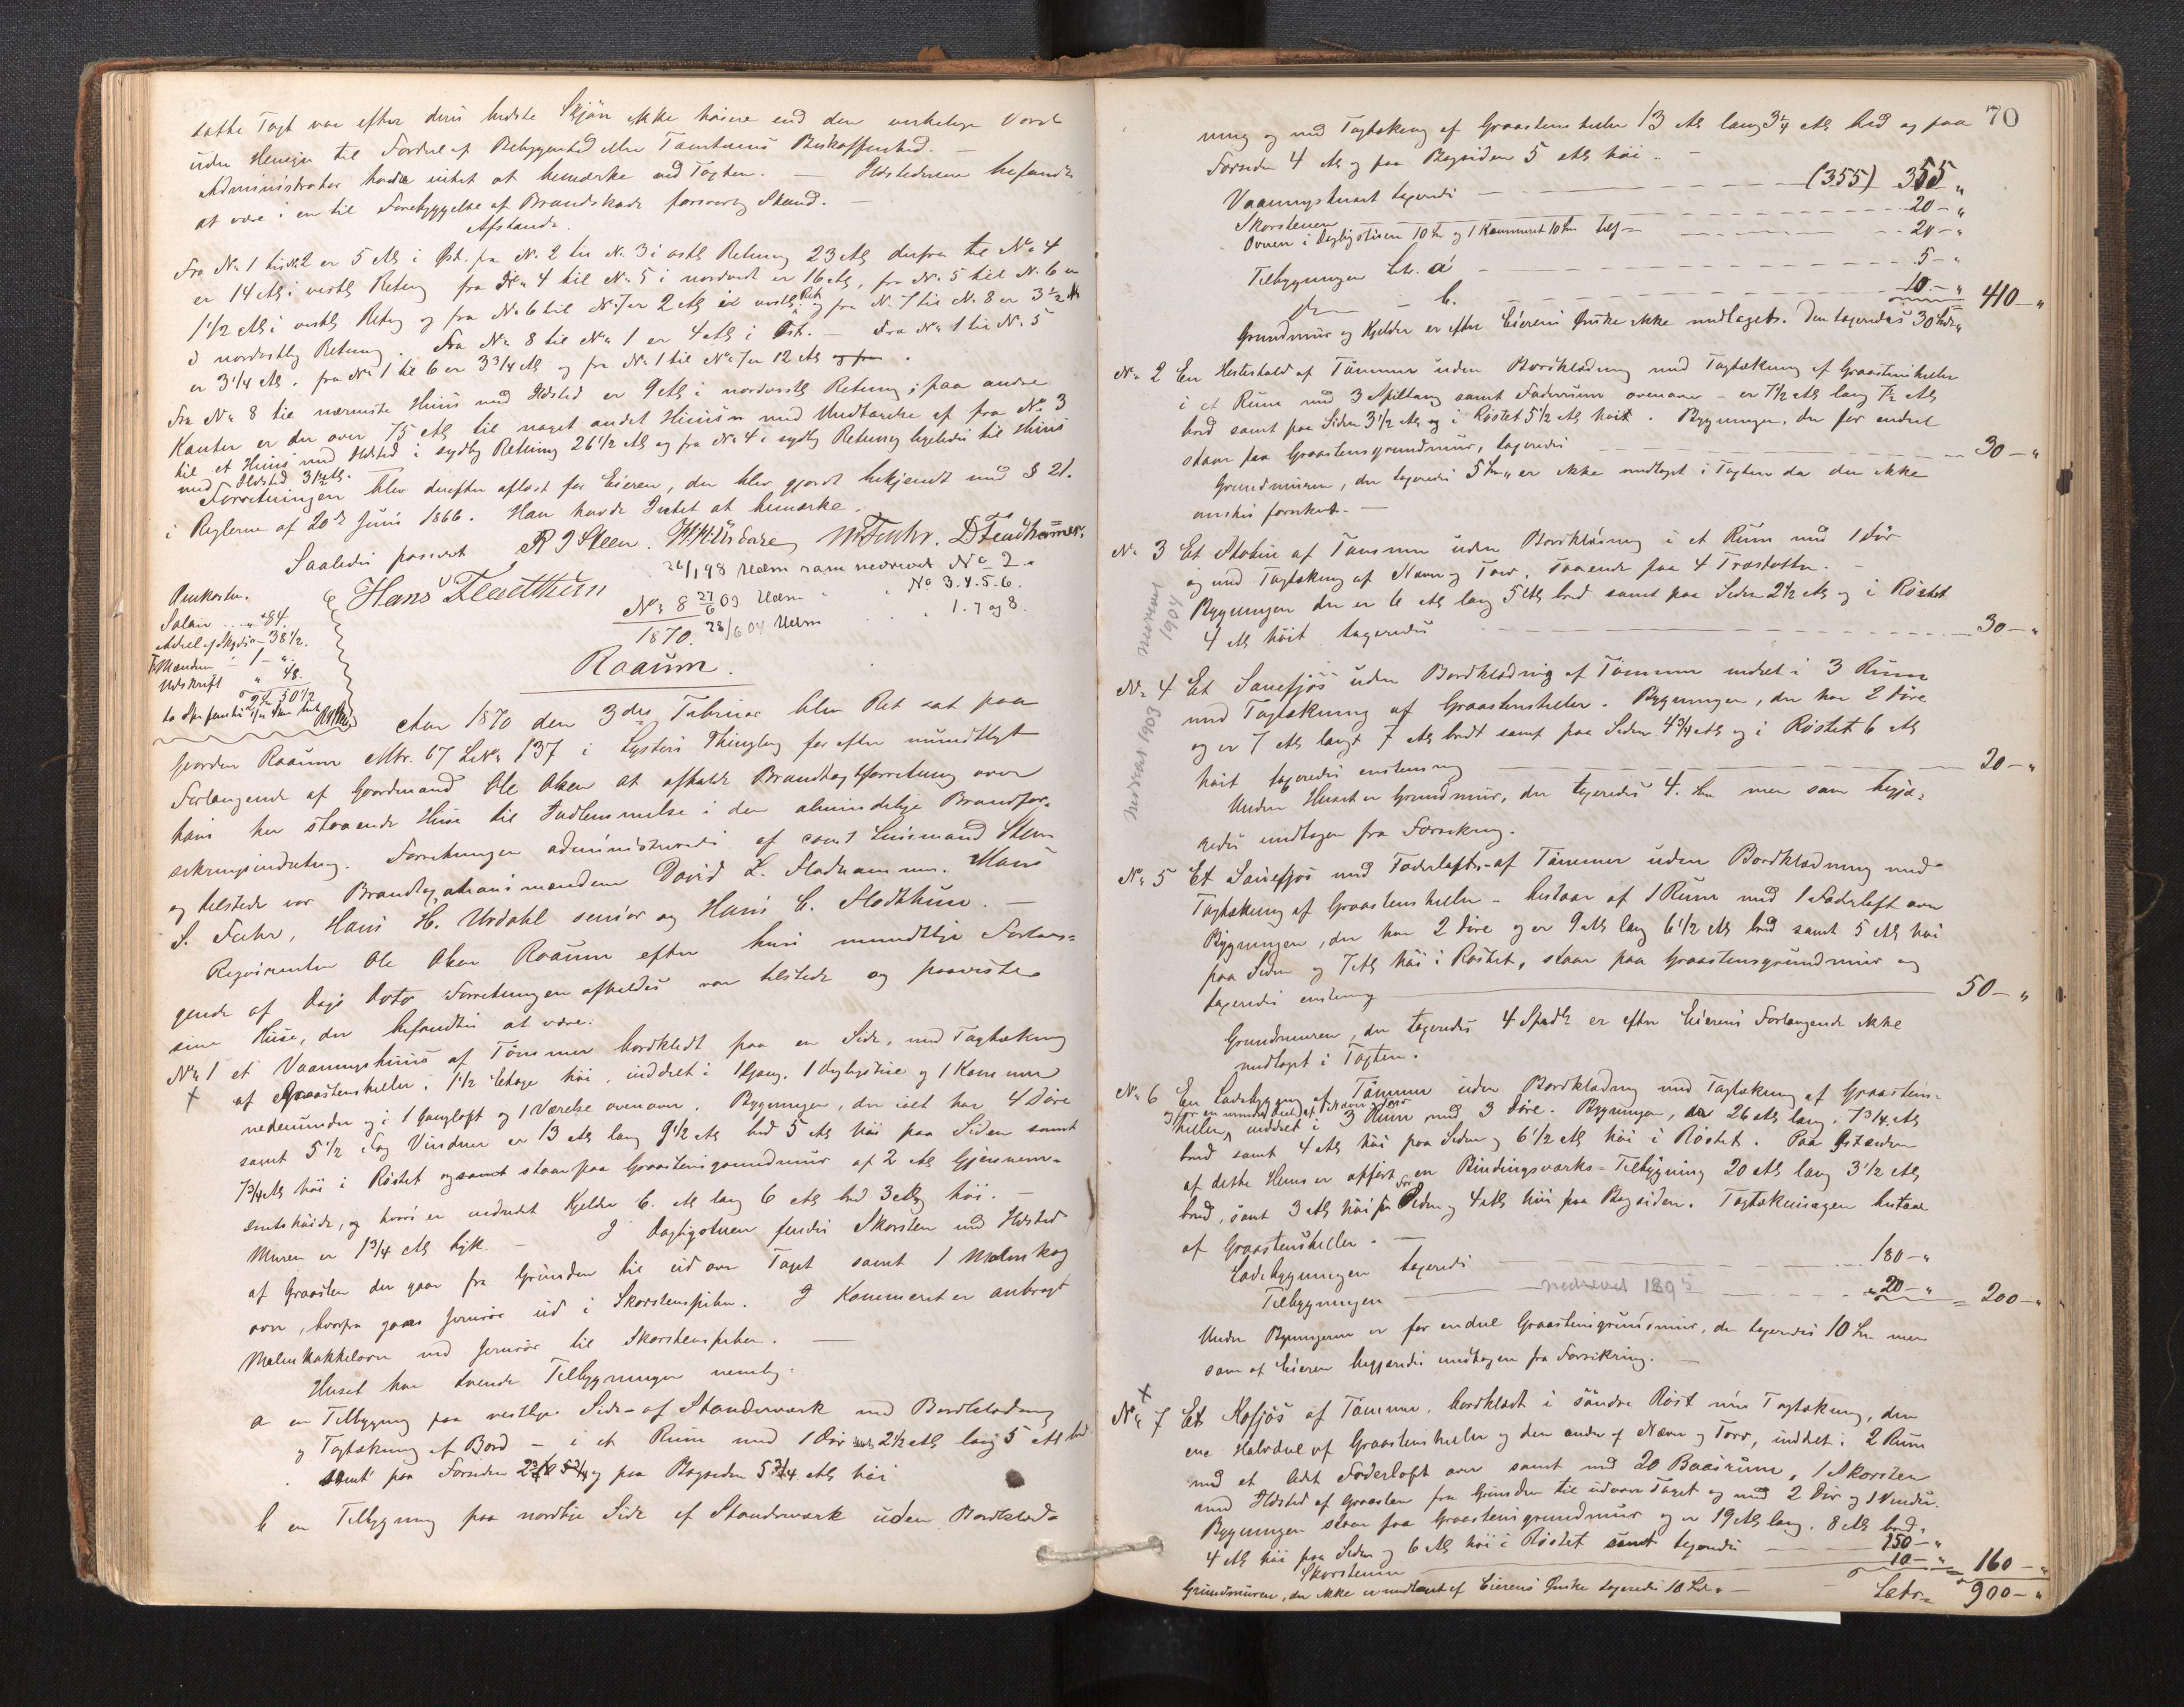 satte Taxt var efter deres bedste Skjøn ikke høiere end den virkelige Værdi
uden Hensyn til Fordel af Bebyggenhed eller Tomternes Beskaffenhed. —
Administrator havde intet at bemærke ved Taxten. — Ildstederne befandtes
at være i en til Forebyggelse af Brandskade forsvarlig Stand. —
Afstande.
Fra No 1 til No 2 er 5 Al i Øst. fra No. 2 til N. 3 i østl Retning 23 Al derfra til No 4
er 14 Al i vestl Retng fra No 4 til No 5 i nordvest er 16 Al, fra No. 5 til N. 6 er
1 1/2 Al i vestl Retng og fra No 6 til No 7 er 2 Al i vestl. Retn og fra N. 7 til No. 8 er 3 1/2 Al
i nordostlig Retning. Fra No 8 til No 1 er 4 Al i Øst. — Fra No 1 til No. 5
er 3 1/4 Al. fra No 1 til 6 er 3 3/4 Al og fra No 1 til No 7 er 12 Al og fra .
Fra No 8 til nærmeste Huus med Ildsted er 9 Al i nordvestl Retning; paa andre
Kanter er der over 75 Al til noget andet Huus med Undtagelse af fra No 3
til et Huus med Ildsted i sydlig Retning 26 1/2 Al og fra No 4 i sydlig Retning ligeledes til Huus
med Ildsted 31 Al.
Forretningen blev derefter oplæst for Eieren, der blev gjordt bekjendt med § 21.
i Reglerne af 20de Juni 1866. Han havde Intet at bemærke.
Saaledes passeret R J Steen. H. H. Urdahl M S Fuhr. D Fladhammer.
Hans Flatthun
26/1 98 Udem samme nedrevet No 2.
No 8 27/6 03 Udem " " No 3. 4. 5. 6.
1870. 28/6 04 Udem " " 1. 7 og 8.
Omkostn.
Salair .... " 84.
Andel af Skyds — 38 1/2.
Mændene — 1 — ".
Udskrift " 48.
2 50 1/2
Roaum.
Aar 1870 den 3die Februar blev Ret sat paa
Gaarden Roaum Mtr. 67 LNo 137 i Lysters Thinglag for efter mundtligt
Forlangende af Gaardmand Ole Olsen at afholde Brandtaxtforretning over
hans her staaende Huse til Indlemmelse i den almindelige Brandfor-
sikringsindretng. Forretningen administreredes af const Lensmand Steen
og tilstede var Brandtaxationsmændene David L. Fladhammer. Mons
S. Fuhr, Hans H. Urdahl senior og Hans C. Flatthun. —
Requirenten Ole Olsen Roaum efter hvis mundtlige Forlan-
gende af Dags Dato Forretningen afholdes var tilstede og paaviste
sine Huse, der befandtes at være:
No 1 et Vaaningshuus af Tømmer bordklædt paa en Side, med Tagtækning
af Graasteensheller. 1 1/2 Etage høi, inddelt i 1 Gang, 1 Dagligstue og 1 Kammer
nedenunder og i 1 Gangloft og 1 Værelse ovenover. Bygningen, der ialt har 4 Døre
samt 5 1/2 Fag Vinduer er 13 Al lang 9 1/2 Al bred 5 Al høi paa Siden samt
7 3/4 Al høi i Røstet og samt staar paa Graasteensgrundmuur af 2 Al Gjennem-
snitshøide, og hvori er indredet Kjelder 6. Al lang 6 Al bred 3 Al høi. —
Muren er 1 3/4 Al tyk. — I Dagligstuen findes Skorsteen med Ildsted
af Graasten der gaar fra Grunden til ud over Taget samt 1 Malmkog
ovn, hvorfra gaar Jernrør ud i Skorstenspiben. I Kammeret er anbragt
Malmkakkelovn med Jernrør til Skorstenspiben. —
Huset har tvende Tilbygninger nemlig:
a en Tilbygning paa vestlige Side af Standerværk med Bordklædning
og Tagtækning af Bord — i et Rum med 1 Dør 2 1/2 Al lang 5 Al bred
samt paa Forsiden 5 1/4 og paa Bagsiden 5 3/4 Al høi
b en Tilbygning paa nordlige Side af Standerværk uden Bordklæd-
70
ning og med Tagtækning af Graasteensheller 13 Al lang 3 1/4 Al bred og paa
Forsiden 4 Al og paa Bagsiden 5 Al høi. —
Vaaningshuset taxeredes — (355) 355 "
Skorstenen — 20 — "
Ovnen i Dagligstuen 10 Sp og 1 Kammeret 10 Sp tils — 20 — "
Tilbygningen Litr. a — 5 — "
do — b. — 10 — " 410 — "
Grundmuur og Kjelder er efter Eierens Ønske ikke medtaget. Den taxeredes 30 Spd "
No 2 En Hestestald af Tømmer uden Bordklædning med Tagtækning af Graasteensheller
i et Rum med 3 Spiltoug samt Foderrum ovenover — er 7 1/2 Al lang 7 1/2 Al
bred samt paa Siden 3 1/2 Al og i Røstet 5 1/2 Al høit. Bygningen, der for endeel
staar paa Graasteensgrundmuur, taxeredes — 30 — "
Grundmuren, der taxeredes 5 Sp " er ikke medtaget i Taxten da den ikke
ønskes forsikret. —
No 3 Et Stabur af Tømmer uden Bordklædning i et Rum med 1 Dør
og med Tagtækning af Næver og Torv, staaende paa 4 Træstolper. —
Bygningen der er 6 Al lang 5 Al bred samt paa Siden 2 1/2 Al og i Røstet
4 Al høit taxeredes — 30 — "
nedrevet 1904
No 4 Et Sauefjøs uden Bordklædning af Tømmer inddelt i 3 Rum
med Tagtækning af Graasteensheller. Bygningen, der har 2 Døre
og er 7 Al langt 7 Al bredt samt paa Siden 4 3/4 Al og i Røstet 6 Al
høit taxeredes enstemmig — 20 — "
nedrevet 1903
Under Huset er Grundmuur, der taxeredes 4. Sp men som begjæ-
redes undtagen fra Forsikring.
No 5 Et Sauefjøs med Foderloft af Tømmer uden Bordklædning med
Tagtækning af Graasteensheller — bestaar af 1 Rum med 1 Foderloft over
Bygningen, der har 2 Døre og er 9 Al lang 6 1/2 Al bred samt 5 Al høi
paa Siden og 7 Al høi i Røstet, staar paa Graasteensgrundmuur og
taxeredes enstemmig — 50 — "
Grundmuren, der taxeredes 4 Spd er efter Eierens Forlangende ikke
medtaget i Taxten.
No 6 En Ladebygning af Tømmer uden Bordklædning med Tagtækning af Graasteens-
og for en mindre Deel af Næver og Torv
heller, inddelt i 3 Rum med 3 Døre. Bygningen, er 26 Al lang, 7 3/4 Al
bred samt 4 Al høi paa Siden og 6 1/2 Al høi i Røstet. Paa Østsiden
af dette Huus er opført en Bindingsværks-Tilbygning 20 Al lang 3 1/2 Al
bred, samt 3 Al høi paa Forsiden og 4 Al høi paa Bagsiden. Tagtækningen bestaar
af Graasteensheller. —
Ladebygningen taxeredes — 180 — "
Tilbygningen — nedrevet 1895 — 20 — " = 200 — "
Under Bygningerne er for endeel Graasteensgrundmuur, der taxeredes 10 Sp men
som af Eieren begjæredes undtagen fra Forsikring. —
No 7 Et Kofjøs af Tømmer, bordklædt i søndre Røst med Tagtækning, den
ene Halvdel af Graasteensheller og den anden af Næver og Torv, inddelt i 2 Rum
med et lidet Foderloft over samt med 20 Baasrum, 1 Skorsten
med Ildsted af Graasten fra Grunden til udover Taget og med 2 Dør og 1 Vindu.
Bygningen staar paa Graasteensgrundmuur og er 19 Al lang. 8 Al bred.
4 Al høi paa Siden og 6 Al høi i Røstet samt taxeredes — 150 — "
Skorstenen — 10 — " = 160 — "
Grundmuren, der ikke er medtaget af Eierens Ønske taxeredes 10 Spd " — Latr. 900 — "